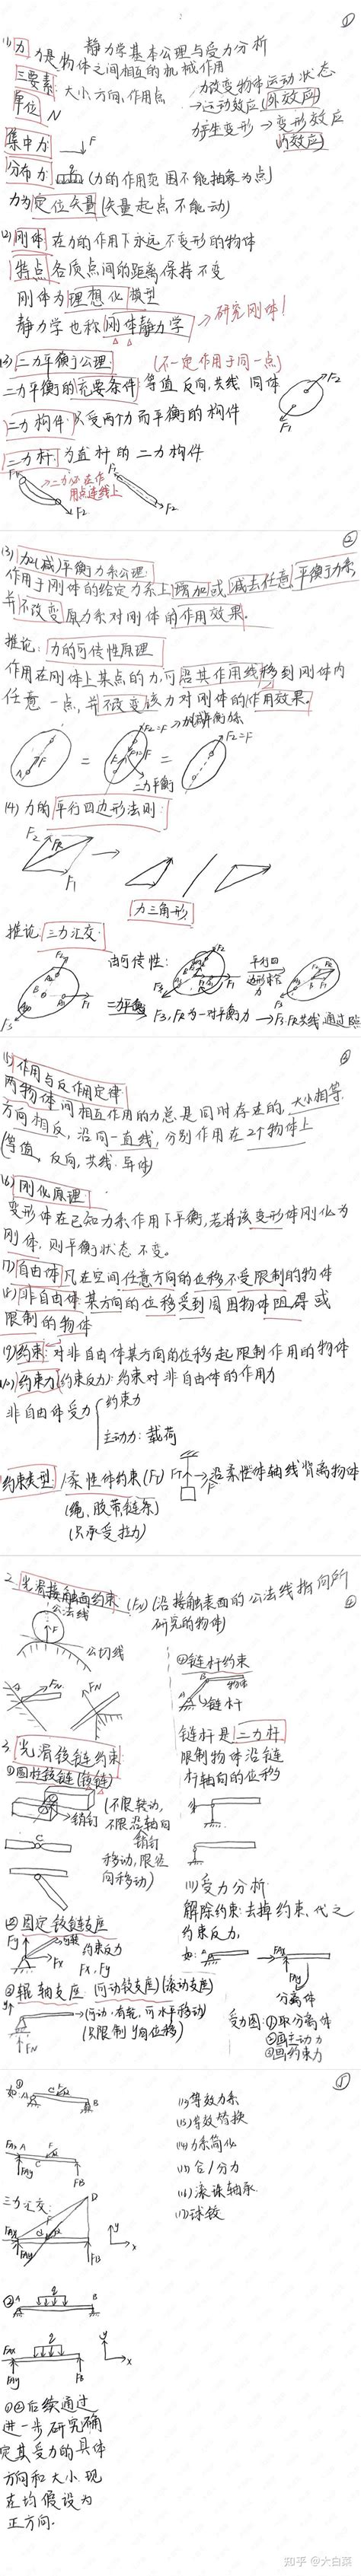 ①
静力学基本公理与受力分析
(1) 力 力是物体之间相互的机械作用
三要素: 大小、方向、作用点
力改变物体运动状态
→运动效应(外效应)
单位 N
力产生变形→变形效应
(内效应)
集中力: F
分布力: q (力的作用范围不能抽象为点)
力为定位矢量(矢量起点不能动)
(2) 刚体 在力的作用下永远不变形的物体
特点 各质点间的距离保持不变
刚体为理想化模型
静力学也称刚体静力学 → 研究刚体!
(3) 二力平衡公理: (不一定作用于同一点)
二力平衡的充要条件: 等值 反向 共线 同体
F2
F1
二力构件: 只受两个力而平衡的构件
二力杆: 为直杆的二力构件
F1 →二力必在作用点连线上 F1
F2 F2
②
(3) 加(减)平衡力系公理:
作用于刚体的给定力系上增加或减去任意平衡力系
并不改变原力系对刚体的作用效果。
推论: 力的可传性原理
作用在刚体上某点的力,可沿其作用线移到刚体内
任意一点,并不改变该力对刚体的作用效果。
F2=F →加减平衡力系 F2=F
A F = F F1=F =
二力平衡
(4) 力的平行四边形法则:
F2 FR
F1
力三角形
推论 三力汇交:
由可传性: 平行四边形合力
二力平衡 F3,FR为一对平衡力 → F3,FR共线通过
③
(5) 作用与反作用定律
两物体间相互作用的力总是同时存在的,大小相等
方向相反,沿同一直线,分别作用在2个物体上
(等值、反向、共线、异体)
(6) 刚化原理:
变形体在已知力系作用下平衡,若将该变形体刚化为
刚体,则平衡状态不变。
(7) 自由体 凡在空间任意方向的位移不受限制的物体
(8) 非自由体 某方向的位移受到周围物体阻碍或
限制的物体
(9) 约束: 对非自由体某方向的位移起限制作用的物体
(10) 约束力(约束反力): 约束对非自由体的作用力
非自由体受力 约束力
主动力: 载荷
约束类型 1柔性体约束(FT) FT →沿柔性体轴线背离物体
(绳、胶带、链条)
(只承受拉力)
④
2. 光滑接触面约束: (FN) (沿接触表面的公法线指向所
研究的物体)
公法线
F
公切线
FN FN
3. 光滑铰链约束:
①圆柱铰链(铰链)
→销钉 (不限转动,
不限沿轴向
销钉
移动,限径
向移动)
C
②固定铰链支座
Fy
Fx 约束反力
Fx、Fy
③辊轴支座 (可动铰支座)(滚动支座)
y →(可动、有轮,可水平移动)
(只限制y向位移)
FN
④链杆约束
B 物体
A →链杆
链杆是二力杆
限制物体沿链
杆轴向的位移
(11) 受力分析:
解除约束: 去掉约束、代之
约束反力,
如: A → FAx
FAy
分离体
受力图: ①取分离体
②画主动力
③画约束力
⑤
如: ① A C F α B
FAx A F α
FAy C FB
三力汇交: D
FAx F α
FAy FB
y
x
② A q B
FAx q
FAy FB
y
x
①②后续通过
进一步研究确
定其受力的具体
方向和大小,现
在均假设为
正方向.
(12) 等效力系
(13) 等效替换
(14) 力系简化
(15) 合/分力
(16) 滚珠轴承
(17) 球铰
知乎 @大白菜